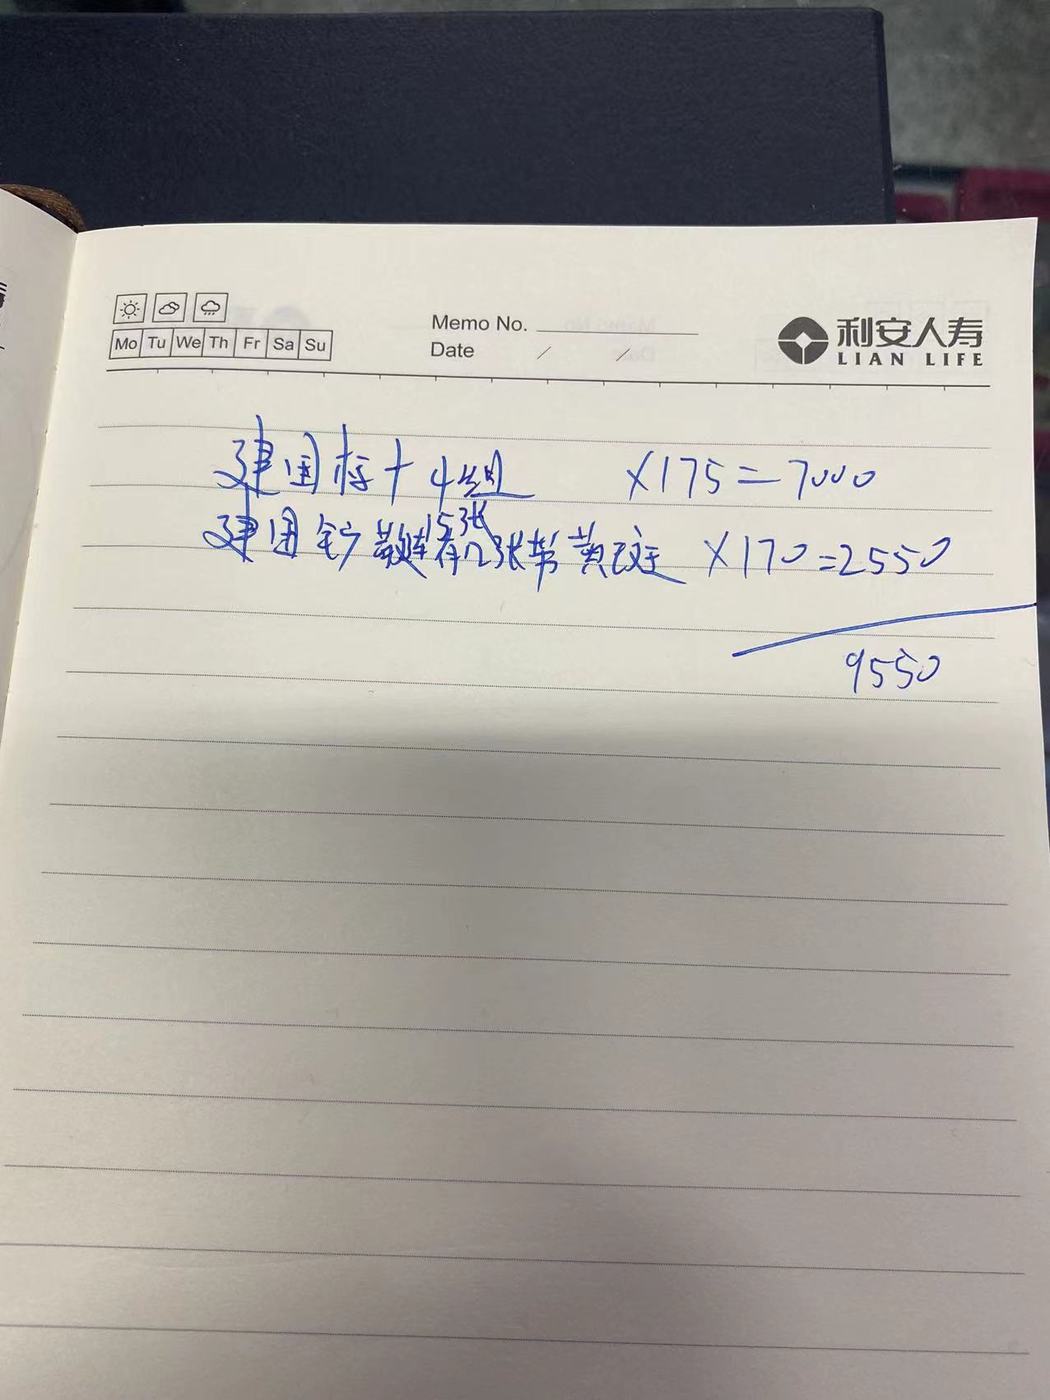 Mo Tu We Th Fr Sa Su
Memo No.
Date / /
利安人寿
LIAN LIFE
建国标十4组 ×175=7000
15张
建国钞散连有几张带黄斑 ×170=2550
9550